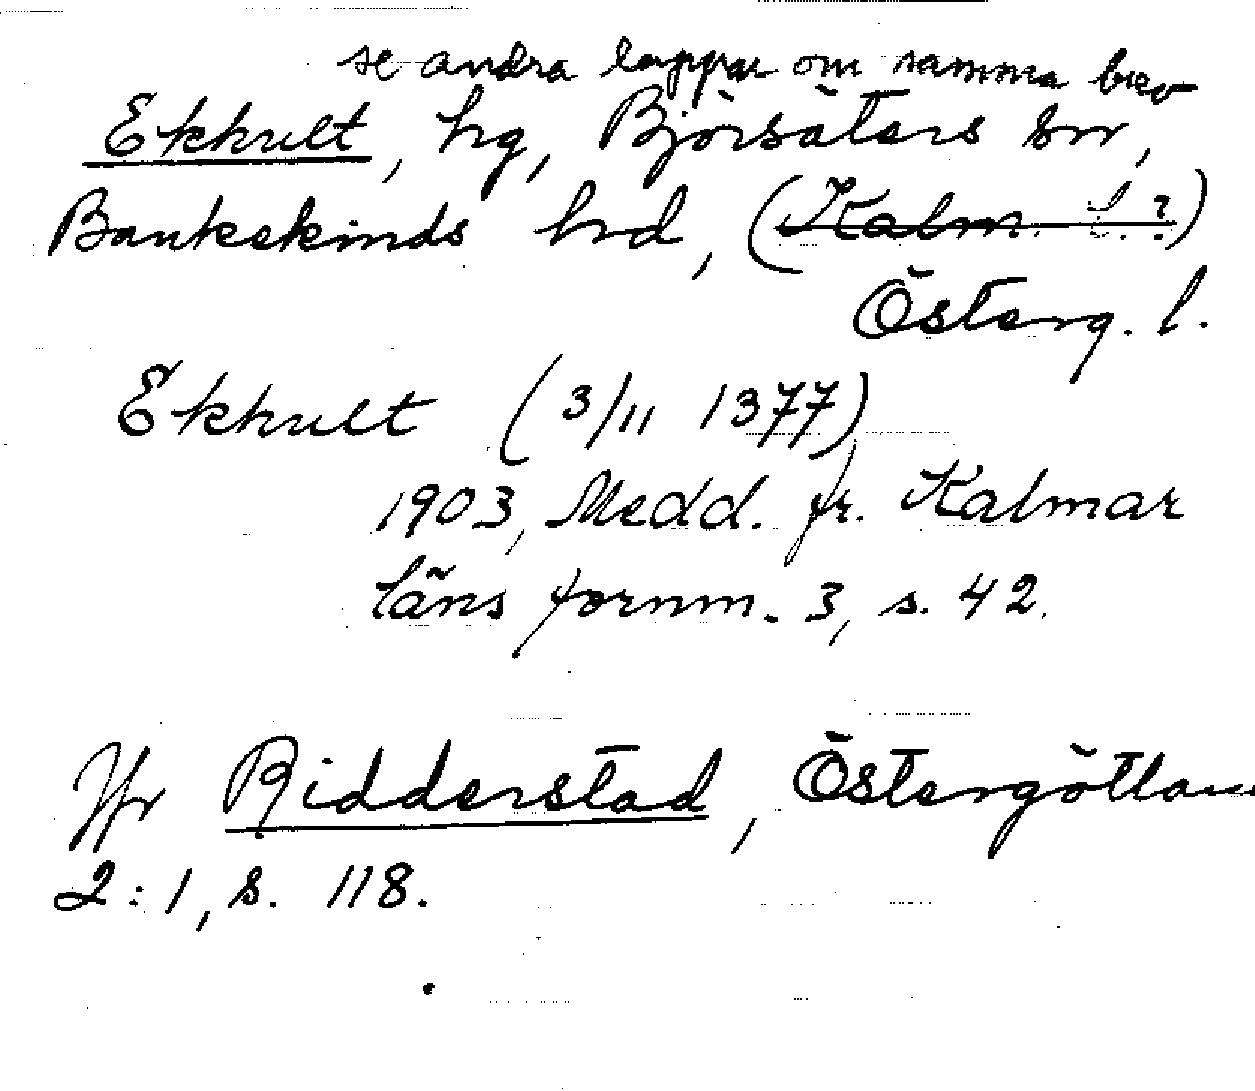 se andra lappar om samma brev
Ekhult, hg, Björsäters sn,
Bankekinds hrd, (Kalm. l.?)
Österg. l.
Ekhult (3/11 1377)
1903, Medd. fr. Kalmar
läns fornm. 3, s. 42.
Jfr Ridderstad, Östergötlan
2:1, s. 118.